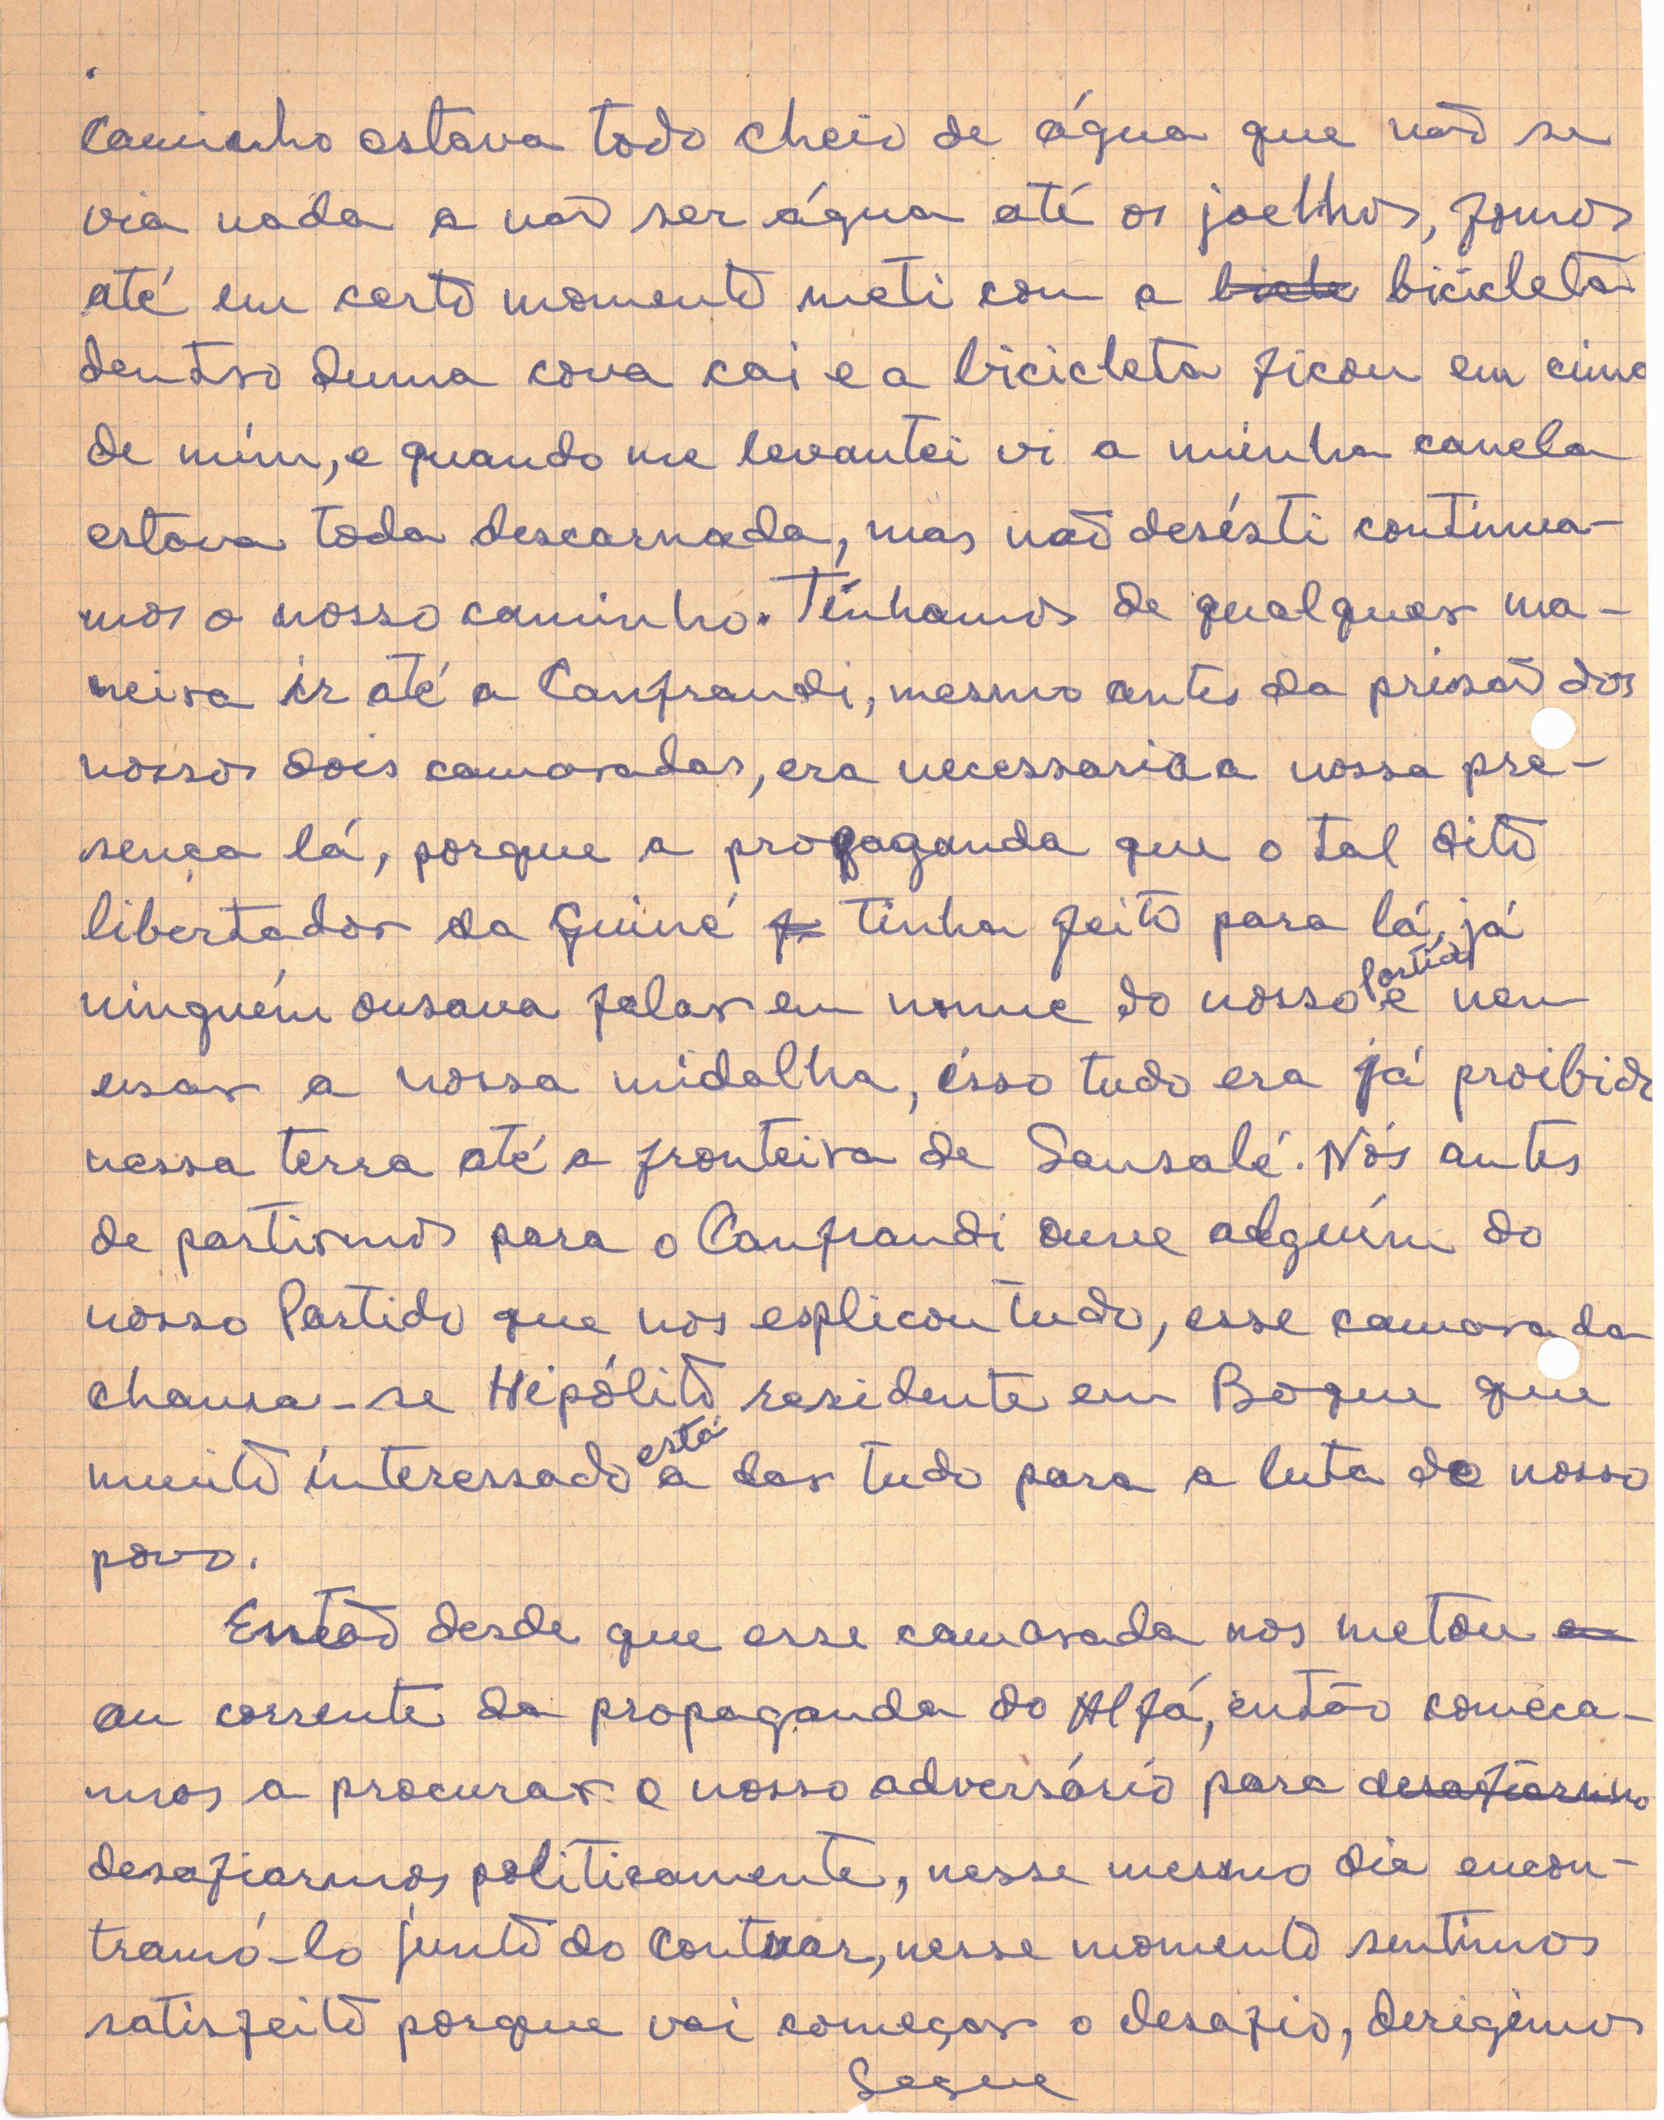 caminho estava todo cheio de água que não se
via nada a não ser água até os joelhos, fomos
até em certo momento meti com a bicicleta
dentro duma cova cai e a bicicleta ficou em cima
de mim, e quando me levantei vi a minha canela
estava toda descarnada, mas não desésti continua-
mos o nosso caminho. Tínhamos de qualquer ma-
neira ir até a Canfrandi, mesmo antes da prisão dos
nossos dois camaradas, era necessaria a nossa pre-
sença lá, porque a propaganda que o tal dito
libertador da Guiné tinha feito para lá, já
ninguém ousava falar em nome do nosso Partido e nem
usar a nossa midalha, isso tudo era já proibido
nessa terra até a fronteira de Sansalé. Nós antes
de partirmos para o Canfrandi ouve alguém do
nosso Partido que nos esplicou tudo, esse camarada
chama-se Hipólito residente em Boque que
muito interessado está a dar tudo para a luta do nosso
povo.
Então desde que esse camarada nos metou
au corrente da propaganda do Alfá, então começa-
mos a procurar o nosso adversário para desafiarmo
desafiarmos politicamente, nesse mesmo dia encon-
tramó-lo junto do Contuar, nesse momento sentimos
satisfeito porque vai começar o desafio, derigimos
Segue